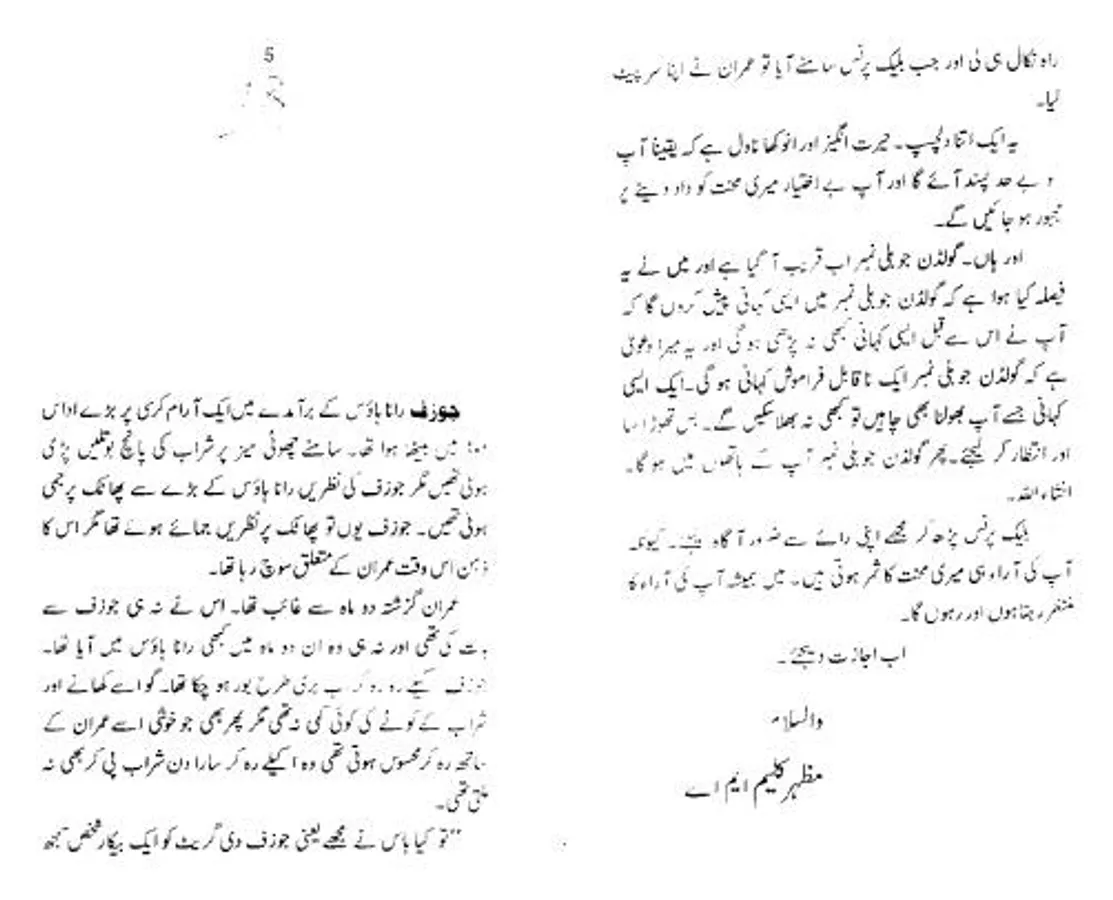 راہ نکال ہی لی اور جب بلیک پرنس سامنے آیا تو عمران نے اپنا سر پیٹ
لیا۔
یہ ایک اتنا دلچسپ۔ حیرت انگیز اور انوکھا ناول ہے کہ یقیناً آپ
و بے حد پسند آئے گا اور آپ بے اختیار میری محنت کو داد دینے پر
مجبور ہو جائیں گے۔
اور ہاں۔ گولڈن جوبلی نمبر اب قریب آ گیا ہے اور میں نے یہ
فیصلہ کیا ہوا ہے کہ گولڈن جوبلی نمبر میں ایسی کہانی پیش کروں گا کہ
آپ نے اس سے قبل ایسی کہانی کبھی نہ پڑھی ہو گی اور یہ میرا دعویٰ
ہے کہ گولڈن جوبلی نمبر ایک ناقابل فراموش کہانی ہو گی۔ ایک ایسی
کہانی جسے آپ بھولنا بھی چاہیں تو کبھی نہ بھلا سکیں گے۔ بس تھوڑا سا
اور انتظار کر لیجئے۔ پھر گولڈن جوبلی نمبر آپ کے ہاتھوں میں ہو گا۔
انشاء اللہ۔
بلیک پرنس پڑھ کر مجھے اپنی رائے سے ضرور آگاہ کیجئے۔ کیونکہ
آپ کی آراء ہی میری محنت کا ثمر ہوتی ہیں۔ میں ہمیشہ آپ کی آراء کا
منتظر رہتا ہوں اور رہوں گا۔
اب اجازت دیجئے۔
والسلام
مظہر کلیم ایم اے
5
جوزف رانا ہاؤس کے برآمدے میں ایک آرام کرسی پر بڑے اداس
موڈ میں بیٹھا ہوا تھا۔ سامنے چھوٹی میز پر شراب کی پانچ بوتلیں پڑی
ہوئی تھیں مگر جوزف کی نظریں رانا ہاؤس کے بڑے سے پھاٹک پر جمی
ہوئی تھیں۔ جوزف یوں تو پھاٹک پر نظریں جمائے ہوئے تھا مگر اس کا
ذہن اس وقت عمران کے متعلق سوچ رہا تھا۔
عمران گزشتہ دو ماہ سے غائب تھا۔ اس نے نہ ہی جوزف سے
بات کی تھی اور نہ ہی وہ ان دو ماہ میں کبھی رانا ہاؤس میں آیا تھا۔
جوزف اکیلے رہ رہ کر بری طرح بور ہو چکا تھا۔ گو اسے کھانے اور
شراب کے کوٹے کی کوئی کمی نہ تھی مگر پھر بھی جو خوشی اسے عمران کے
ساتھ رہ کر محسوس ہوتی تھی وہ اکیلے رہ کر سارا دن شراب پی کر بھی نہ
ملتی تھی۔
"تو کیا باس نے مجھے یعنی جوزف دی گریٹ کو ایک بیکار شخص سمجھ